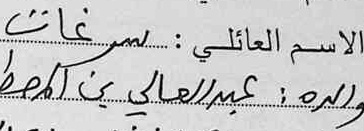 الاسم العائلي : سرغات
والده : عبد العالي بن